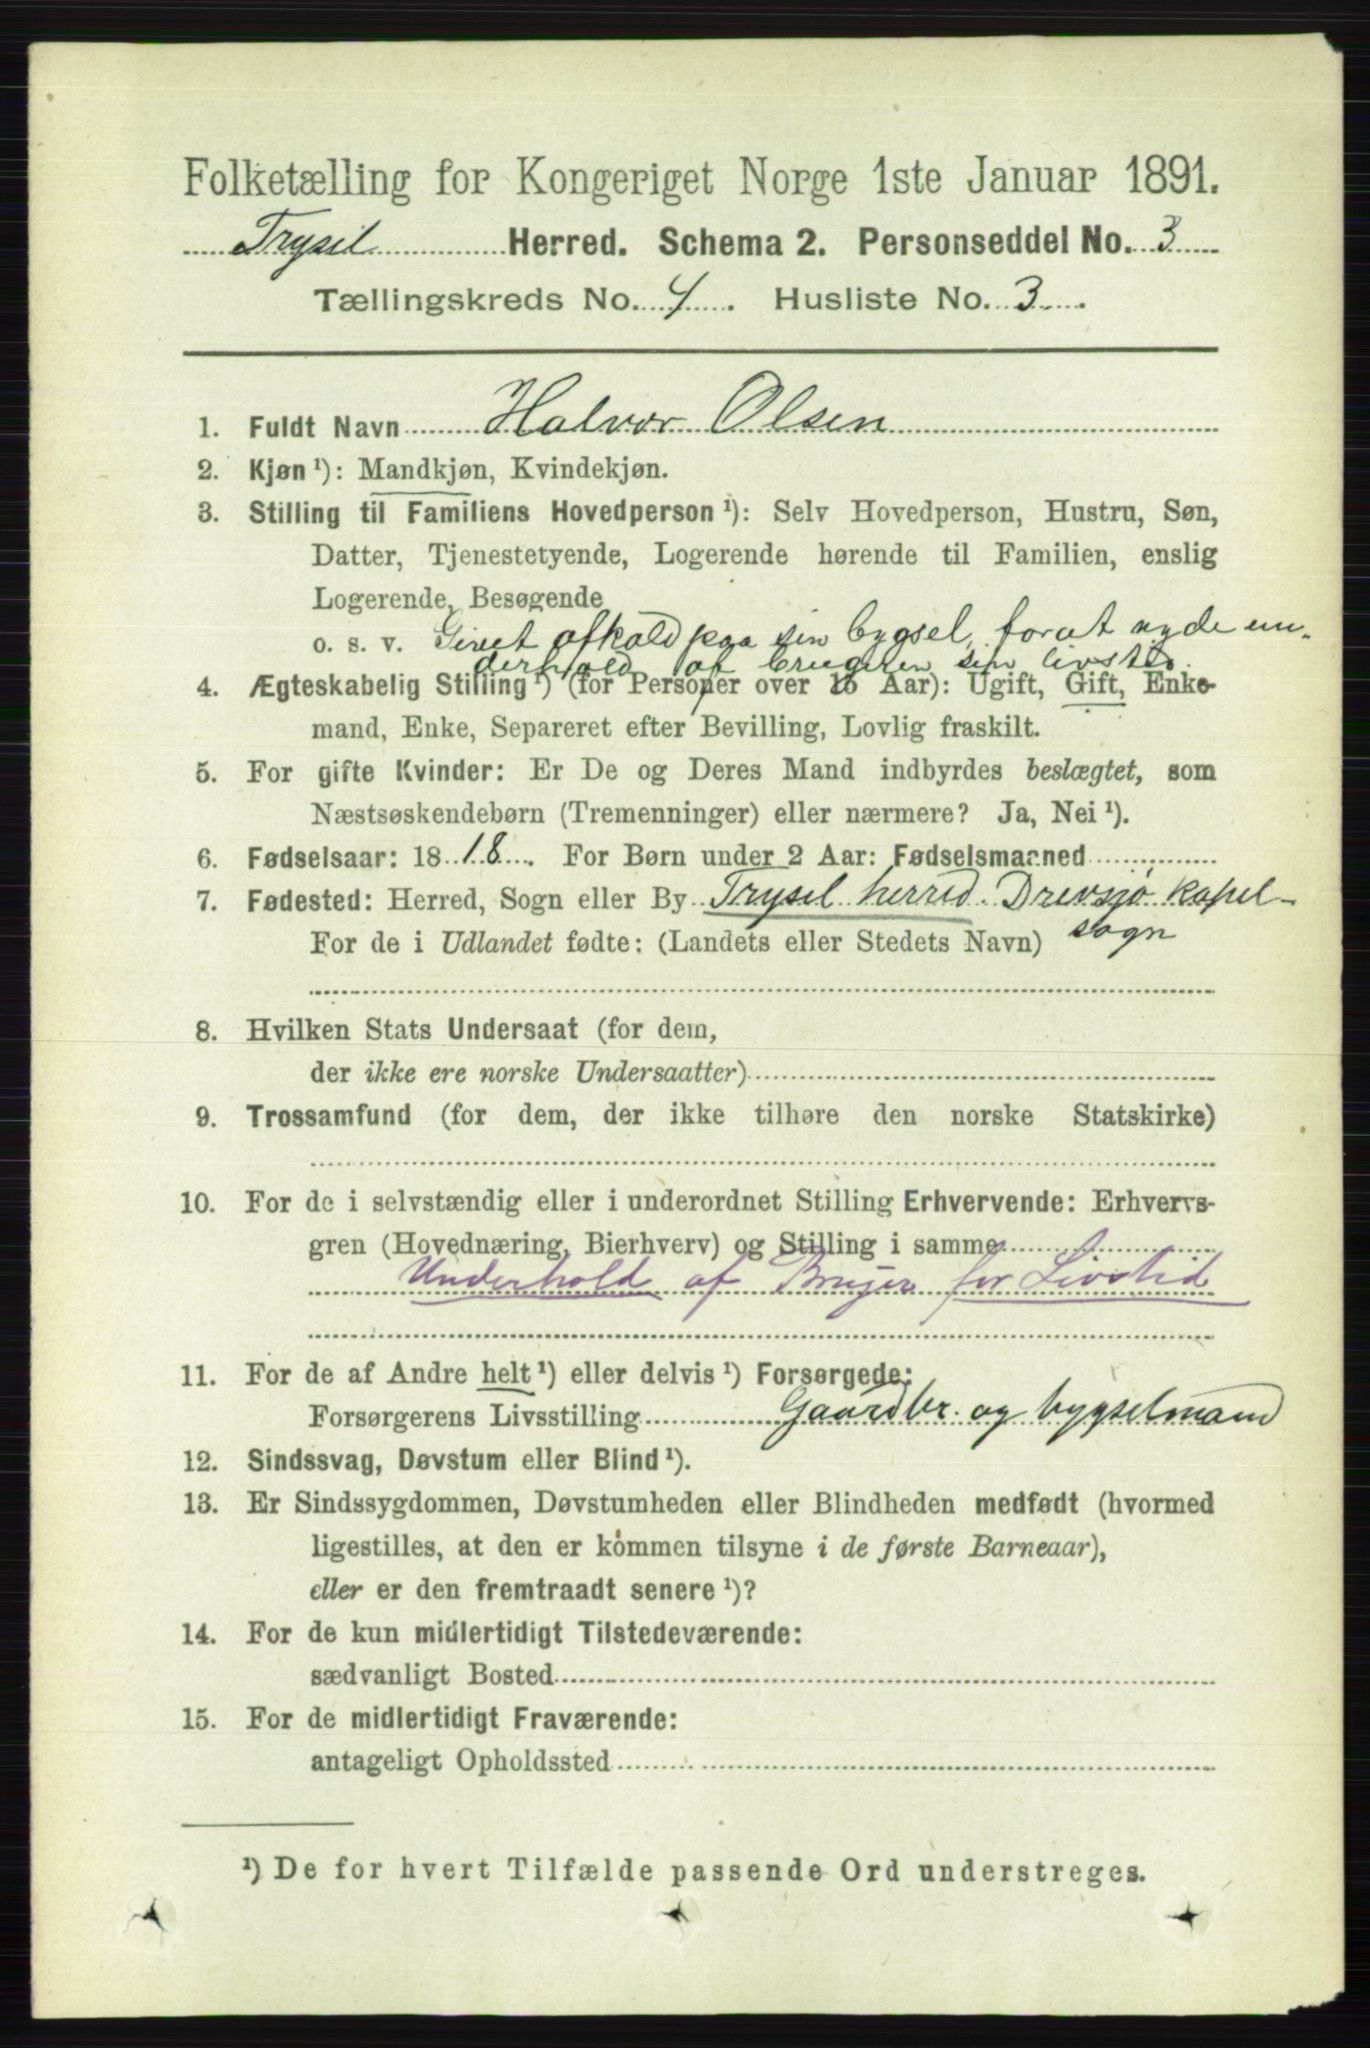 Folketælling for Kongeriget Norge 1ste Januar 1891.
Trysil Herred. Schema 2. Personseddel No. 3
Tællingskreds No. 4. Husliste No. 3.
1. Fuldt Navn Halvor Olsen
2. Kjøn ¹): Mandkjøn, Kvindekjøn.
3. Stilling til Familiens Hovedperson ¹): Selv Hovedperson, Hustru, Søn,
Datter, Tjenestetyende, Logerende hørende til Familien, enslig
Logerende, Besøgende
o. s. v. Givet afkald paa sin bygsel, forat nyde un-
derhold af brugeren sin livstid.
4. Ægteskabelig Stilling ¹) (for Personer over 15 Aar): Ugift, Gift, Enke-
mand, Enke, Separeret efter Bevilling, Lovlig fraskilt.
5. For gifte Kvinder: Er De og Deres Mand indbyrdes beslægtet, som
Næstsøskendebørn (Tremenninger) eller nærmere? Ja, Nei ¹).
6. Fødselsaar: 1818. For Børn under 2 Aar: Fødselsmaaned
7. Fødested: Herred, Sogn eller By Trysil herred. Drevsjø Kapel-
For de i Udlandet fødte: (Landets eller Stedets Navn) sogn
8. Hvilken Stats Undersaat (for dem,
der ikke ere norske Undersaatter)
9. Trossamfund (for dem, der ikke tilhøre den norske Statskirke)
10. For de i selvstændig eller i underordnet Stilling Erhvervende: Erhvervs-
gren (Hovednæring, Bierhverv) og Stilling i samme
Underhold af Bruger for Livstid
11. For de af Andre helt ¹) eller delvis ¹) Forsørgede:
Forsørgerens Livsstilling Gaardbr. og bygselmand
12. Sindssvag, Døvstum eller Blind ¹).
13. Er Sindssygdommen, Døvstumheden eller Blindheden medfødt (hvormed
ligestilles, at den er kommen tilsyne i de første Barneaar),
eller er den fremtraadt senere ¹)?
14. For de kun midlertidigt Tilstedeværende:
sædvanligt Bosted
15. For de midlertidigt Fraværende:
antageligt Opholdssted
¹) De for hvert Tilfælde passende Ord understreges.